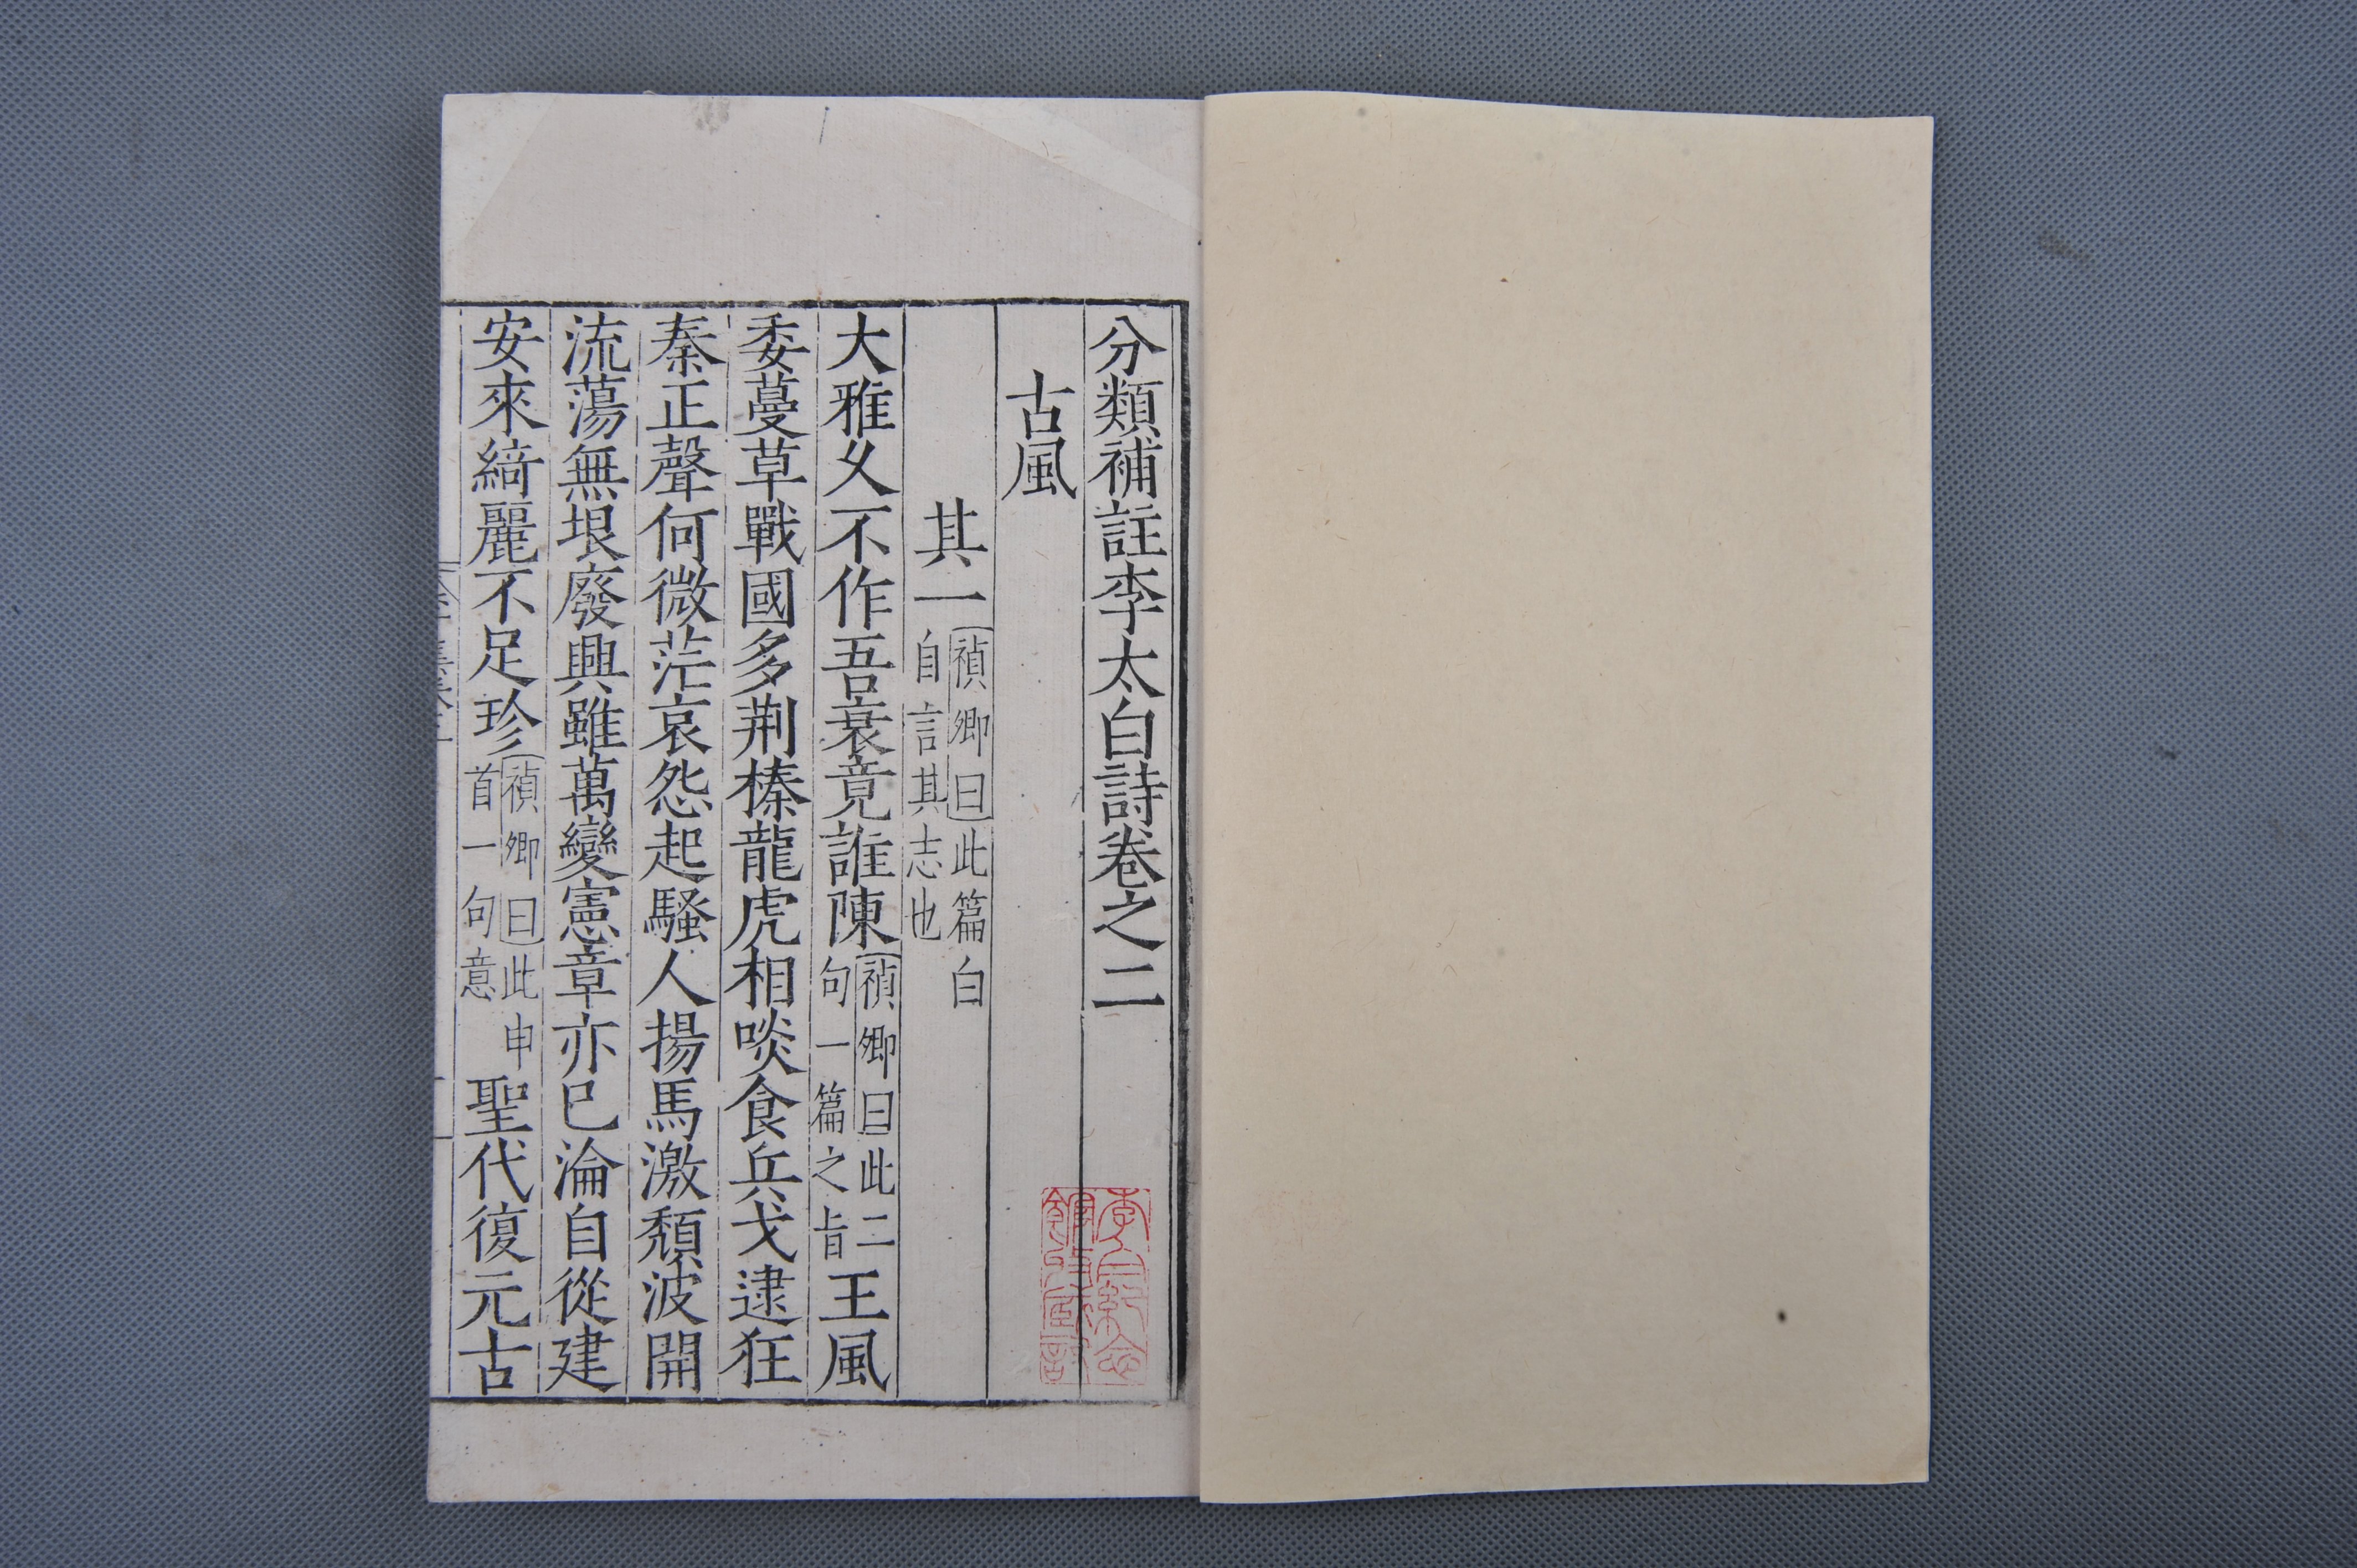 分類補註李太白詩卷之二
古風
其一禎卿曰此篇白
自言其志也
大雅乆不作吾衰竟誰陳禎卿曰此二
句一篇之旨王風
委蔓草戰國多荆榛龍虎相啖食兵戈逮狂
秦正聲何微茫哀怨起騷人揚馬激頽波開
流蕩無垠廢興雖萬變憲章亦已淪自從建
安來綺麗不足珍禎卿曰此申
首一句意聖代復元古